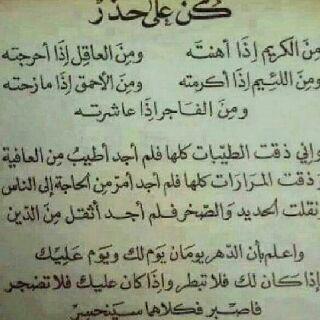 كن على حذر
من الكريم إذا أهنته ومن العاقل إذا أحرجته
ومن اللئيم إذا أكرمته ومن الأحمق إذا مازحته
ومن الفاجر إذا عاشرته
وإني ذقت الطيبات كلها فلم أجد أطيب من العافية
وذقت المرارات كلها فلم أجد أمر من الحاجة إلى الناس
ونقلت الحديد والصخر فلم أجد أثقل من الدين
واعلم بأن الدهر يومان يوم لك ويوم عليك
إذا كان لك فلا تبطر وإذا كان عليك فلا تضجر
فاصبر فكلاهما سينحسر